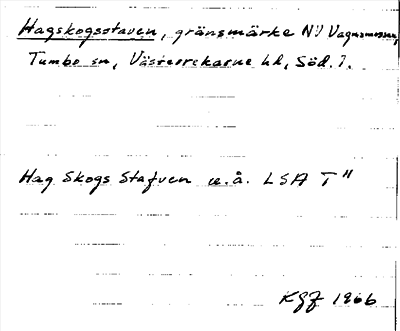 Hagskogsstaven, gränsmärke NV Vagnsmossen,
Tumbo sn, Västerrekarne hd, Söd. l.
Hag Skogs Stafven u.å. LSA T"
1966